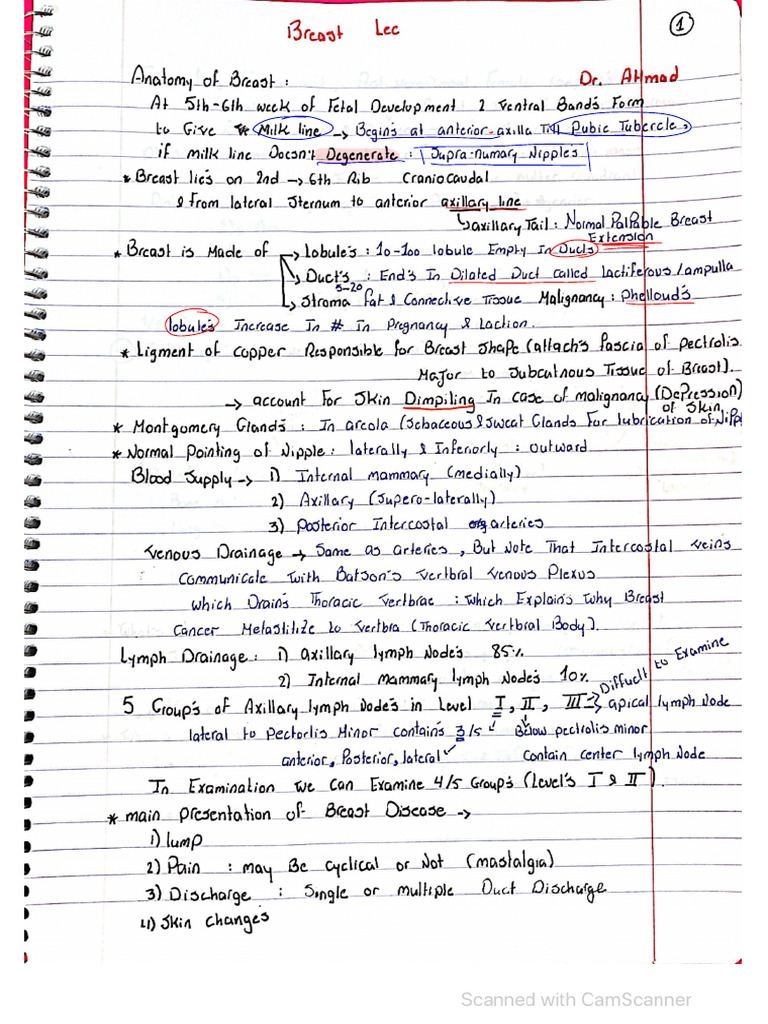 Breast Lec
1
Anatomy of Breast :
Dr. Ahmad
At 5th-6th week of Fetal Development 2 Ventral Bands Form
to Give Milk line → Begins at anterior axilla Till Pubic Tubercle,
if milk line Doesn't Degenerate : Supra-numary Nipples
* Breast lies on 2nd → 6th Rib Craniocaudal
& From lateral sternum to anterior axillary line
axillary Tail : Normal Palpable Breast
Extension
* Breast is Made of → Lobule's : 10-100 lobule Empty In Ducts
Duct's : End's In Dilated Duct called Lactiferous/ampulla
5-20
Stroma Fat & Connective Tissue Malignancy : Phelloud's
lobule's Increase In # In Pregnancy & Laction.
* Ligment of copper Responsible for Breast shape (attach's fascia of Pectrolis
Major to Subcutnous Tissue of Breast).
→ account for Skin Dimpiling In case of malignancy (Depression)
of Skin
* Montgomery Glands : In areola (Sebaceous & Sweat Glands For lubrication of Nippl
* Normal Pointing of Nipple : laterally & Inferiorly : outward
Blood Supply → 1) Internal mammary (medially)
2) Axillary (Supero-laterally)
3) Posterior Intercostal arteries
Venous Drainage → Same as arteries, But Note That Intercostal veins
Communicate with Batson's vertbral venous Plexus
which Drain's Thoracic vertbrae : which Explains why Breast
Cancer Metastitize to vertbra (Thoracic vertbral Body).
Lymph Drainage : 1) axillary lymph Node's 85%
2) Internal Mammary lymph Node's 10%
Difficult to Examine
5 Group's of Axillary lymph Node's in Level I, II, III → apical lymph Node
lateral to Pectorlis Minor contain's 3/5 ✓ Below pectrolis minor
anterior, Posterior, lateral ✓ Contain center lymph Node
In Examination we can Examine 4/5 Group's (Level's I & II).
* main presentation of Breast Disease →
1) lump
2) Pain : may Be cyclical or Not (mastalgia)
3) Discharge : Single or multiple Duct Discharge
4) Skin changes
Scanned with CamScanner